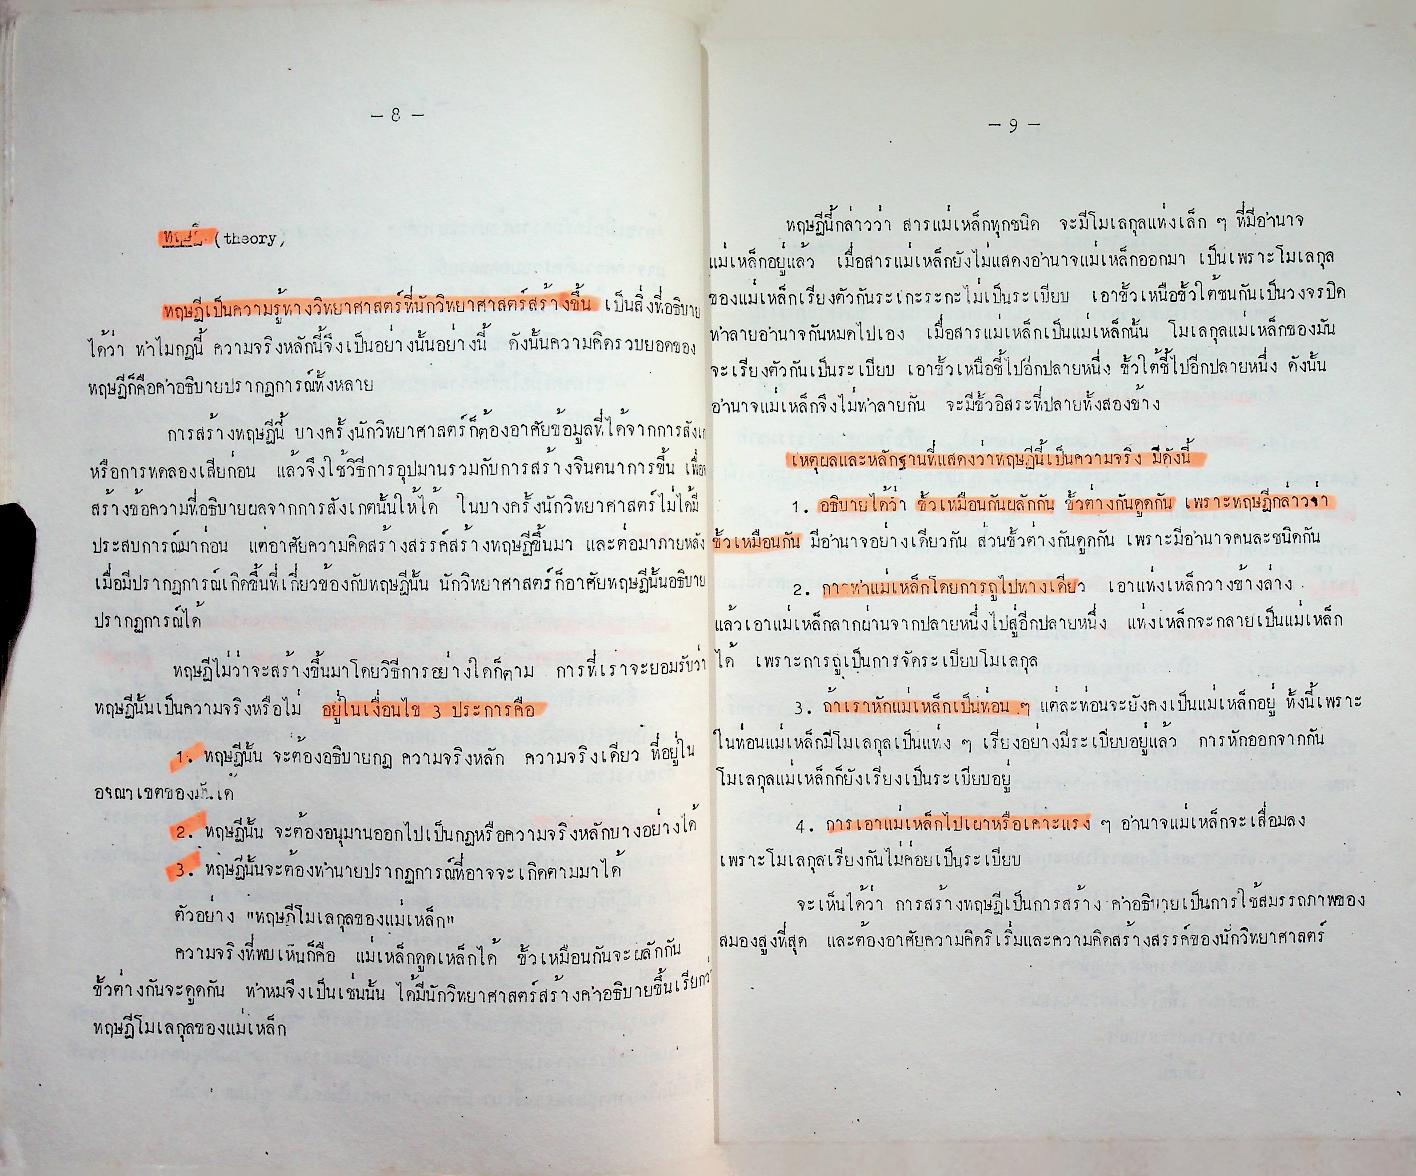 - 8 -
ทฤษฎี (theory)
ทฤษฎีเป็นความรู้ทางวิทยาศาสตร์ที่นักวิทยาศาสตร์สร้างขึ้น เป็นสิ่งที่อธิบาย
ได้ว่า ทำไมกฎนี้ ความจริงหลักนี้จึงเป็นอย่างนั้นอย่างนี้ ดังนั้นความคิดรวบยอดของ
ทฤษฎีก็คือคำอธิบายปรากฏการณ์ทั้งหลาย
การสร้างทฤษฎีนี้ บางครั้งนักวิทยาศาสตร์ก็ต้องอาศัยข้อมูลที่ได้จากการสังเก
หรือการทดลองเสียก่อน แล้วจึงใช้วิธีการอุปมานรวมกับการสร้างจินตนาการขึ้น เพื่อ
สร้างข้อความที่อธิบายผลจากการสังเกตนั้นให้ได้ ในบางครั้งนักวิทยาศาสตร์ไม่ได้มี
ประสบการณ์มาก่อน แต่อาศัยความคิดสร้างสรรค์สร้างทฤษฎีขึ้นมา และต่อมาภายหลัง
เมื่อมีปรากฏการณ์เกิดขึ้นที่เกี่ยวข้องกับทฤษฎีนั้น นักวิทยาศาสตร์ก็อาศัยทฤษฎีนั้นอธิบาย
ปรากฏการณ์ได้
ทฤษฎีไม่ว่าจะสร้างขึ้นมาโดยวิธีการอย่างใดก็ตาม การที่เราจะยอมรับว่า
ทฤษฎีนั้นเป็นความจริงหรือไม่ อยู่ในเงื่อนไข 3 ประการคือ
1. ทฤษฎีนั้น จะต้องอธิบายกฎ ความจริงหลัก ความจริงเดียว ที่อยู่ใน
อาณาเขตของมันได้
2. ทฤษฎีนั้น จะต้องอนุมานออกไปเป็นกฎหรือความจริงหลักบางอย่างได้
3. ทฤษฎีนั้นจะต้องทำนายปรากฏการณ์ที่อาจจะเกิดตามมาได้
ตัวอย่าง "ทฤษฎีโมเลกุลของแม่เหล็ก"
ความจริงที่พบเห็นก็คือ แม่เหล็กดูดเหล็กได้ ขั้วเหมือนกันจะผลักกัน
ขั้วต่างกันจะดูดกัน ทำหมจึงเป็นเช่นนั้น ได้มีนักวิทยาศาสตร์สร้างคำอธิบายขึ้นเรียกว่า
ทฤษฎีโมเลกุลของแม่เหล็ก
- 9 -
ทฤษฎีนี้กล่าวว่า สารแม่เหล็กทุกชนิด จะมีโมเลกุลแท่งเล็ก ๆ ที่มีอำนาจ
แม่เหล็กอยู่แล้ว เมื่อสารแม่เหล็กยังไม่แสดงอำนาจแม่เหล็กออกมา เป็นเพราะโมเลกุล
ของแม่เหล็กเรียงตัวกันระเกะระกะไม่เป็นระเบียบ เอาขั้วเหนือขั้วใต้ชนกันเป็นวงจรปิด
ทำลายอำนาจกันหมดไปเอง เมื่อสารแม่เหล็กเป็นแม่เหล็กนั้น โมเลกุลแม่เหล็กของมัน
จะเรียงตัวกันเป็นระเบียบ เอาขั้วเหนือชี้ไปอีกปลายหนึ่ง ขั้วใต้ชี้ไปอีกปลายหนึ่ง ดังนั้น
อำนาจแม่เหล็กจึงไม่ทำลายกัน จะมีขั้วอิสระที่ปลายทั้งสองข้าง
เหตุผลและหลักฐานที่แสดงว่าทฤษฎีนี้เป็นความจริง มีดังนี้
1. อธิบายได้ว่า ขั้วเหมือนกันผลักกัน ขั้วต่างกันดูดกัน เพราะทฤษฎีกล่าวว่า
ขั้วเหมือนกัน มีอำนาจอย่างเดียวกัน ส่วนขั้วต่างกันดูดกัน เพราะมีอำนาจคนละชนิดกัน
2. การทำแม่เหล็กโดยการถูไปทางเดียว เอาแท่งเหล็กวางข้างล่าง
แล้วเอาแม่เหล็กลากผ่านจากปลายหนึ่งไปสู่อีกปลายหนึ่ง แท่งเหล็กจะกลายเป็นแม่เหล็ก
ได้ เพราะการถูเป็นการจัดระเบียบโมเลกุล
3. ถ้าเราหักแม่เหล็กเป็นท่อน ๆ แต่ละท่อนจะยังคงเป็นแม่เหล็กอยู่ ทั้งนี้เพราะ
ในท่อนแม่เหล็กมีโมเลกุลเป็นแท่ง ๆ เรียงอย่างมีระเบียบอยู่แล้ว การหักออกจากกัน
โมเลกุลแม่เหล็กก็ยังเรียงเป็นระเบียบอยู่
4. การเอาแม่เหล็กไปเผาหรือเคาะแรง ๆ อำนาจแม่เหล็กจะเสื่อมลง
เพราะโมเลกุลเรียงกันไม่ค่อยเป็นระเบียบ
จะเห็นได้ว่า การสร้างทฤษฎีเป็นการสร้าง คำอธิบายเป็นการใช้สมรรถภาพของ
สมองสูงที่สุด และต้องอาศัยความคิดริเริ่มและความคิดสร้างสรรค์ของนักวิทยาศาสตร์